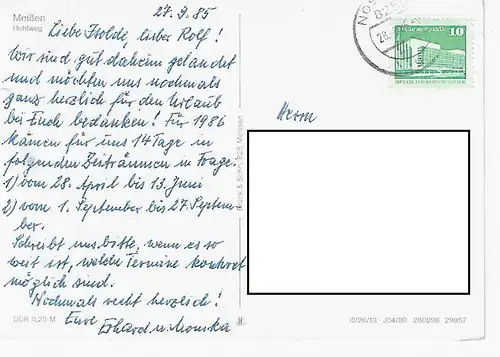 Meißen
Hohlweg
27.9.85
Liebe Isolde, lieber Rolf!
Wir sind gut daheim gelandet
und möchten uns nochmals
ganz herzlich für den Urlaub
bei Euch bedanken! Für 1986
kämen für uns 14 Tage in
folgenden Beiträumen in Frage.
1) vom 28. April bis 13. Juni
2) vom 1. September bis 27. Septem-
ber.
Schreibt uns bitte, wenn es so
weit ist, welche Termine konkret
möglich sind.
Nochmals recht herzlich!
Eure
Erhard u. Monika
DDR 0,20 M
Herrn
10
III/26/13 · J04/80 280298 29957